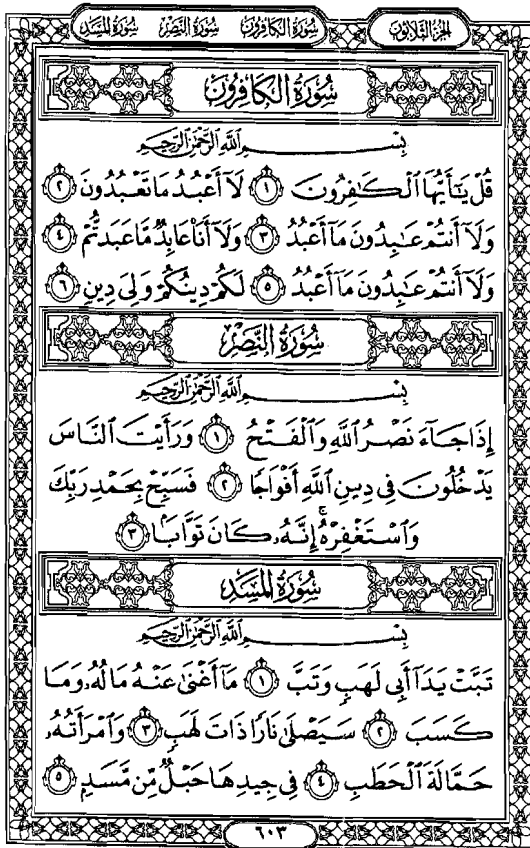 الجزء الثلاثون سورة الكافرون سورة النصر سورة المسد
سُورَةُ الكَافِرُونَ
بِسْمِ ٱللَّهِ ٱلرَّحْمَٰنِ ٱلرَّحِيمِ
قُلْ يَٰٓأَيُّهَا ٱلْكَٰفِرُونَ ١ لَآ أَعْبُدُ مَا تَعْبُدُونَ ٢
وَلَآ أَنتُمْ عَٰبِدُونَ مَآ أَعْبُدُ ٣ وَلَآ أَنَا۠ عَابِدٌ مَّا عَبَدتُّمْ ٤
وَلَآ أَنتُمْ عَٰبِدُونَ مَآ أَعْبُدُ ٥ لَكُمْ دِينُكُمْ وَلِيَ دِينِ ٦
سُورَةُ النَّصْرِ
بِسْمِ ٱللَّهِ ٱلرَّحْمَٰنِ ٱلرَّحِيمِ
إِذَا جَآءَ نَصْرُ ٱللَّهِ وَٱلْفَتْحُ ١ وَرَأَيْتَ ٱلنَّاسَ
يَدْخُلُونَ فِى دِينِ ٱللَّهِ أَفْوَاجًا ٢ فَسَبِّحْ بِحَمْدِ رَبِّكَ
وَٱسْتَغْفِرْهُ ۚ إِنَّهُۥ كَانَ تَوَّابًۢا ٣
سُورَةُ المَسَدِ
بِسْمِ ٱللَّهِ ٱلرَّحْمَٰنِ ٱلرَّحِيمِ
تَبَّتْ يَدَآ أَبِى لَهَبٍ وَتَبَّ ١ مَآ أَغْنَىٰ عَنْهُ مَالُهُۥ وَمَا
كَسَبَ ٢ سَيَصْلَىٰ نَارًا ذَاتَ لَهَبٍ ٣ وَٱمْرَأَتُهُۥ
حَمَّالَةَ ٱلْحَطَبِ ٤ فِى جِيدِهَا حَبْلٌ مِّن مَّسَدٍۭ ٥
٦٠٣